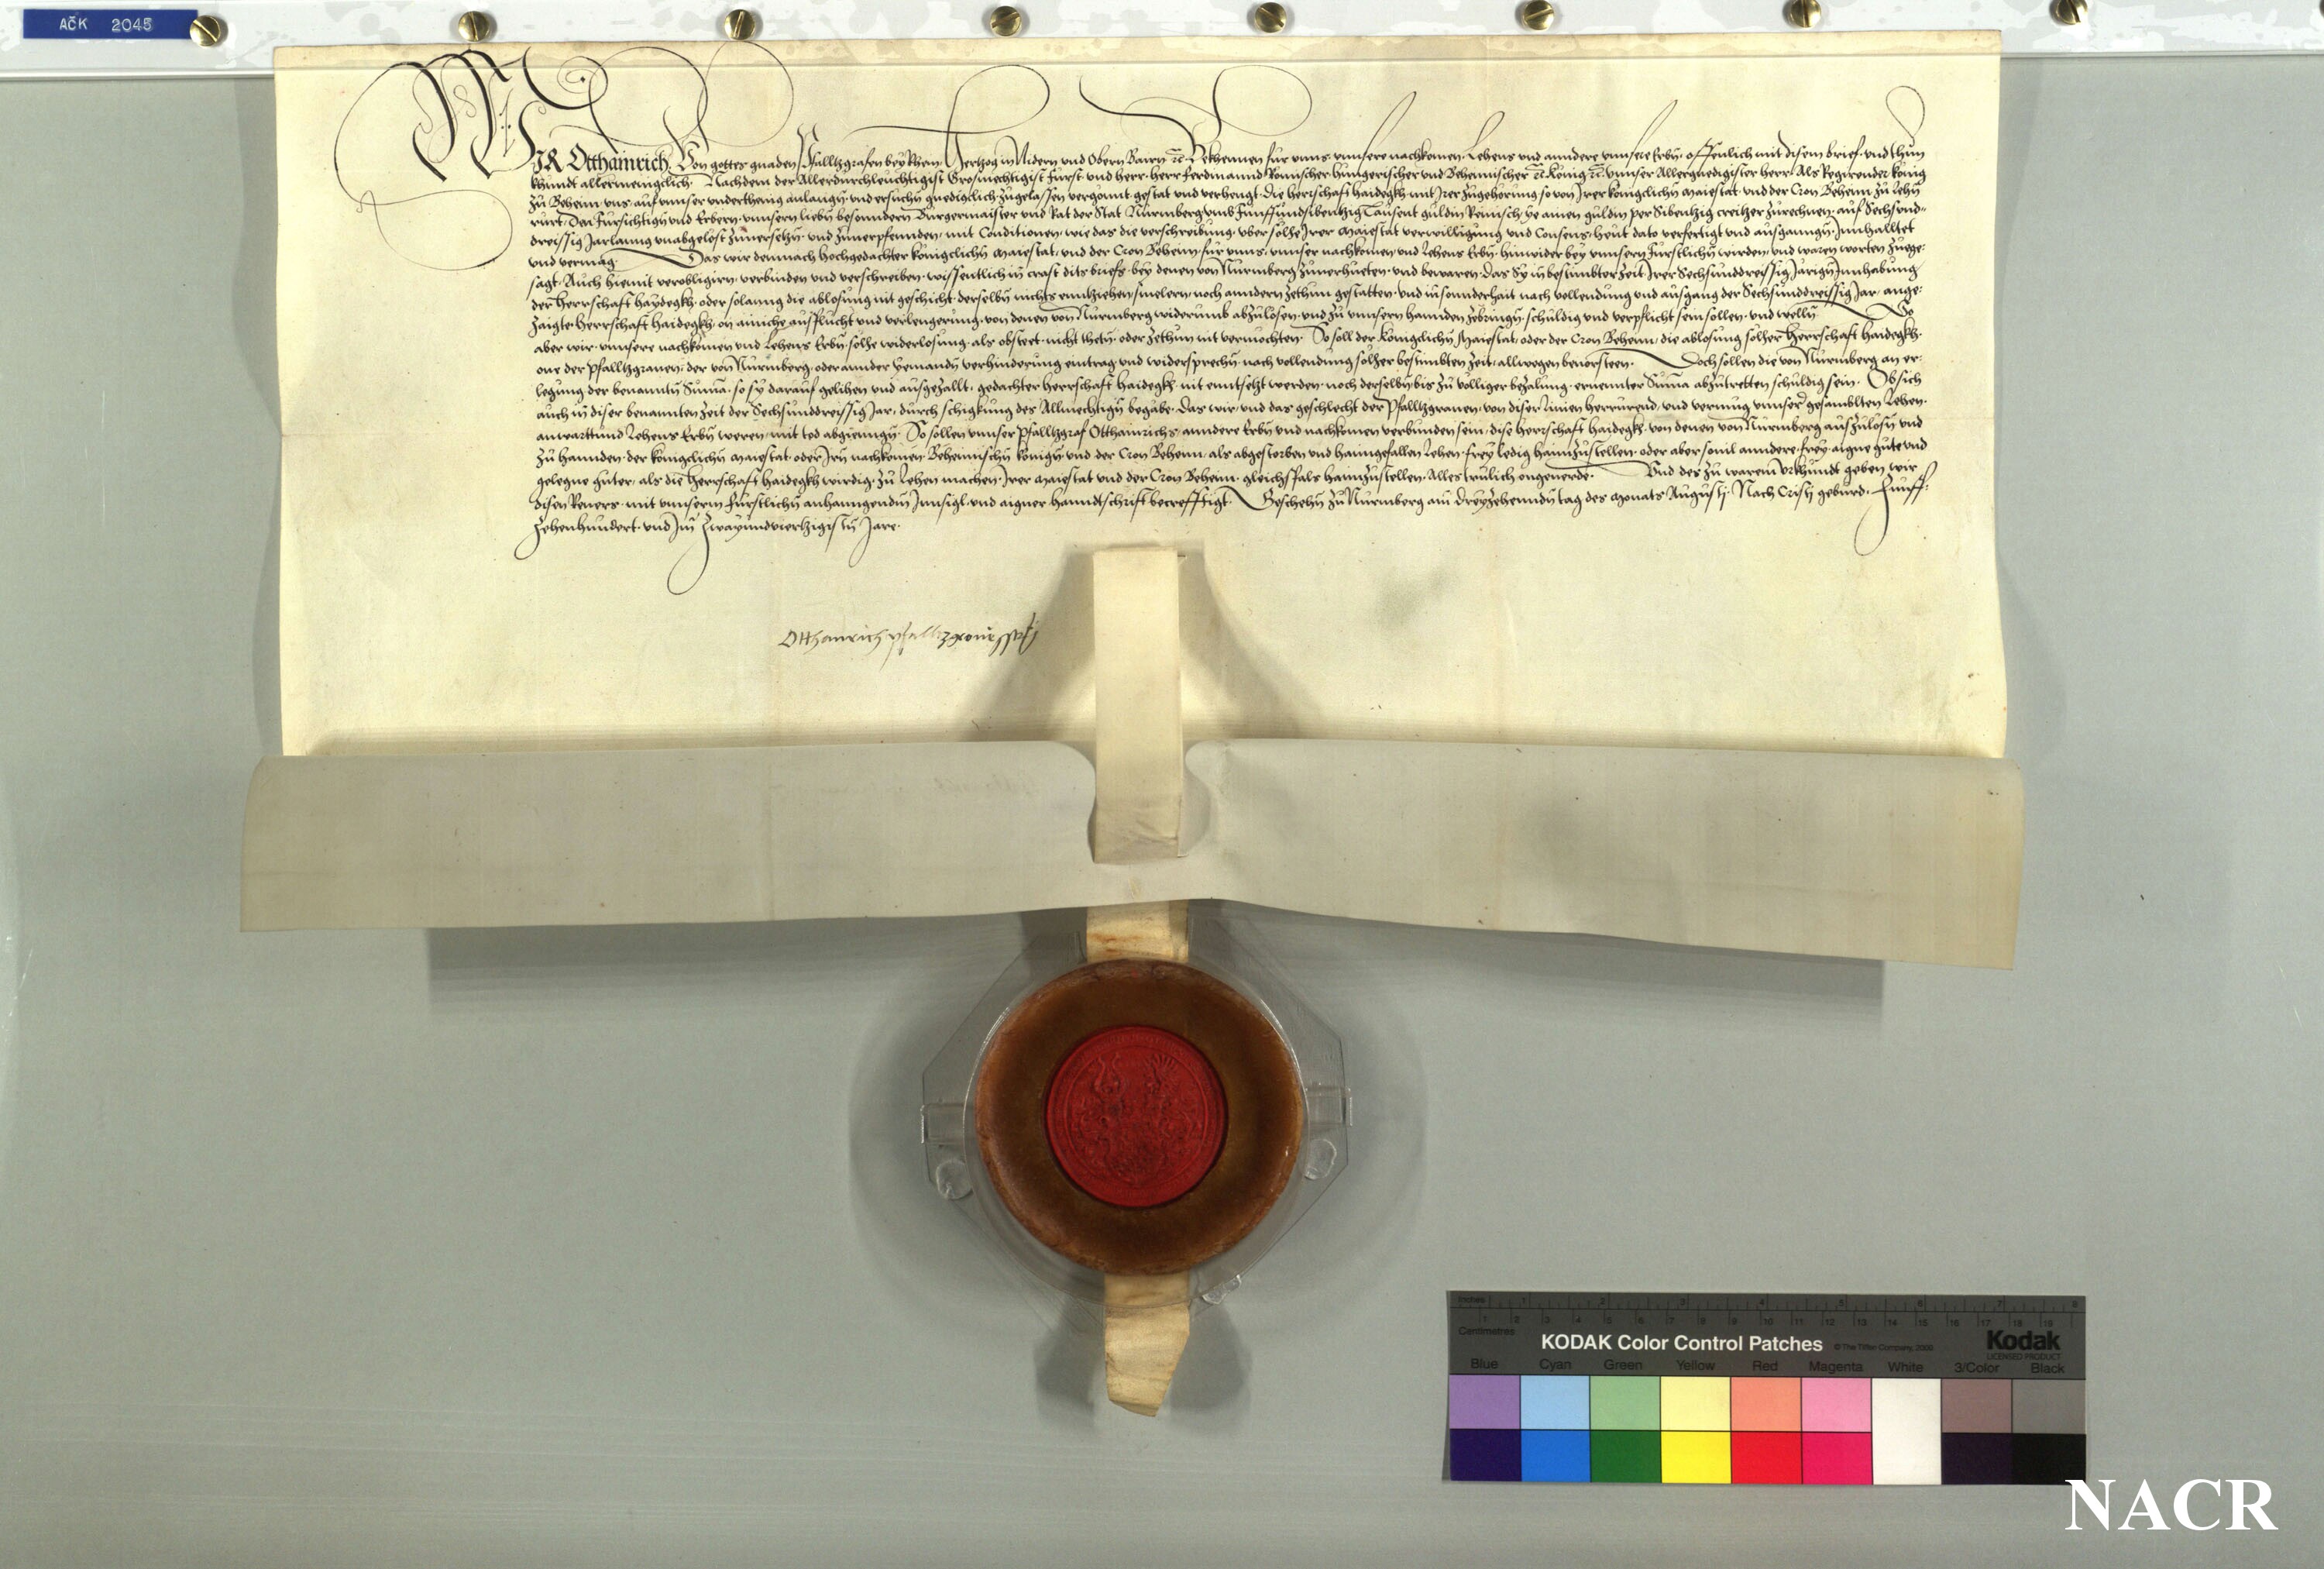 AČK 2045
WIR Otthainrich Von gottes gnaden Pfalltzgrafen bey Rhein Hertzog in Nidern und Obern Bairn etc Bekhennen für unns, unnsere nachkomen, Lehens und anndere unnsere Erbn, offenlich mit disem brief, und thun
khundt allermenigclich. Nachdem der Allerdurchleuchtigist Grosmechtigist Fürst und herr, herr Ferdinannd Römischer Hungerischer und Behemischer etc König etc unnser Allergnedigister herr Als Regirender König
zu Beheim uns auf unnser underthenig anlangn und ersuchn gnedigclich zugelassen vergonnt gestat und verhengt, die herrschaft haidegkh mit Irer zugehorung so von Irer königclichn Maiestat und der Cron Beheim zu Lehn
rürt, Den Fürsichtign und Erbern, unnsern liebn besonndern Burgermaister und Rat der Stat Nürmberg umb Funffundsibentzig Tausent guldin Reinisch, ye ainen guldin per Sibentzig creitzer zurechnen, auf Sechsund-
dreissig Jar lanng unabgelöst zuversetzn und zuverpfennden, mit Conditionen, wie das die verschreibung uber solhe Irer Maiestat verwilligung und Consens, heut dato verfertigt und ausganngn, Innhalltet
und vermag. Das wir demnach hochgedachter königclichn Maiestat, und der Cron Beheim, für unns, unnser nachkomen und Lehens Erbn, hinwider bey unnsern Fürstlichn wirden, und waren worten zuge-
sagt, Auch hiemit verobligirn, verbinden und verschreiben, wissentlich in craft dits briefs, bey denen von Nürmberg zuverhüeten, und bewaren, Das Sy in bestimbter zeit Irer Sechsunddreissig Järign Innhabung
der herrschaft haydegkh, oder solanng die ablosung nit geschicht, derselbn nichts enntziehen smelern noch anndern zethun gestatten, und in sonnderhait nach vollendung und ausgang der Sechsunddreissig Jar, ange-
zaigte herrschaft haidegkh, on ainiche ausflucht und verlengerung, von denen von Nürmberg widerumb abzulösen, und zu unnsern hannden zebringn, schuldig und verpflicht sein sollen, und welln. So
aber wir, unnsere nachkomen und Lehens Erbn, solhe widerlosung, als obsteet, nicht thetn, oder zethun nit vermochten. So soll der königclichn Maiestat, oder der Cron Beheim, die ablosung solher herrschaft haidegkh,
one der Pfalltzgraven, der von Nürmberg, oder annder yemandn verhinderung eintrag und widersprechn, nach vollendung solher bestimbten zeit, allwegen bevorsteen. Doch sollen die von Nürmberg an er-
legung der benanntn Suma, so sy darauf gelihen und ausgezallt, gedachter herrschaft haidegkh nit enntsetzt werden, noch derselbn bis zu volliger bezalung, ernennter Suma abzutretten schuldig sein. Ob sich
auch in diser benannten zeit der Sechsunddreissig Jar, durch schigkung des Allmechtign begäbe, Das wir, und das geschlecht der Pfalltzgraven, von diser Linien herrürend, und vermug unnser gesambleten Lehen
anwartt und Lehens Erbn weren, mit tod abgienngn, So sollen unnser Pfalltzgraf Otthainrichs anndere Erbn und nachkomen verbunden sein, dise herrschaft haidegkh, von denen von Nürmberg auszulösn und
zu hannden, der königclichn Maiestat, oder Irn nachkomen Behemischn könign und der Cron Beheim, als abgestorben und haimgefallen Lehen, frey ledig haimzustellen, oder aber sovil anndere, frey aigne gute und
gelegne güter, als die herrschaft haidegkh wirdig, zu Lehen machen, Irer Maiestat und der Cron Beheim, gleichsfals haimzustellen. Alles treulich ongeverde. Und des zu warem Urkhundt geben wir
disen Revers, mit unnserm Fürstlichn anhanngendn Innsigl, und aigner hanndtschrift becrefftigt. Geschehn zu Nürmberg am dreyzehenndn tag des Monats Augustj, Nach Cristj gebürd, Funff-
zehenhundert, und Im Zwayundviertzigistn Jare.
Otthainrich pfalltzgrave
Inches 1 2 3 4 5 6 7 8
Centimetres 1 2 3 4 5 6 7 8 9 10 11 12 13 14 15 16 17 18 19
KODAK Color Control Patches © The Tiffen Company, 2000 Kodak
LICENSED PRODUCT
Blue Cyan Green Yellow Red Magenta White 3/Color Black
NACR